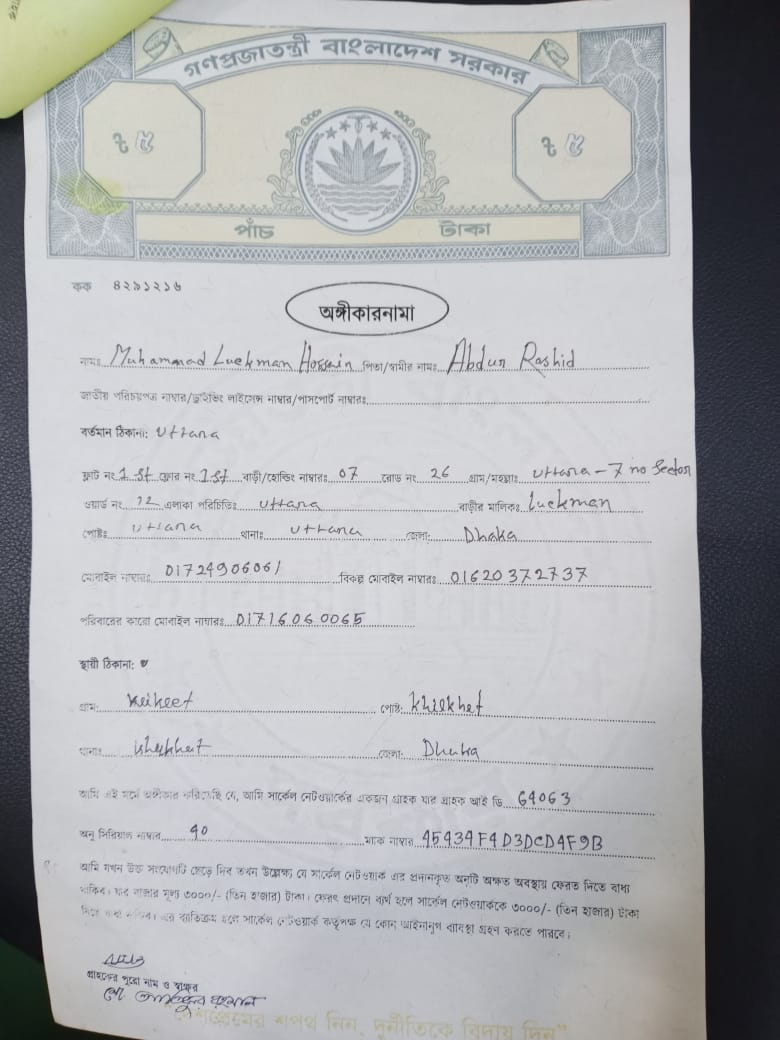 গণপ্রজাতন্ত্রী বাংলাদেশ সরকার
৳ ৫ ৳ ৫
পাঁচ টাকা
কক ৪২৯১২১৬
অঙ্গীকারনামা
নামঃ Muhammad Luckman Hossain পিতা/স্বামীর নামঃ Abdur Rashid
জাতীয় পরিচয়পত্র নাম্বার/ড্রাইভিং লাইসেন্স নাম্বার/পাসপোর্ট নাম্বারঃ
বর্তমান ঠিকানা: Uttara
ফ্লাট নং 1st ফ্লোর নং 1st বাড়ী/হোল্ডিং নাম্বারঃ 07 রোড নং 26 গ্রাম/মহল্লাঃ Uttara - 7 no Sector
ওয়ার্ড নং 12 এলাকা পরিচিতিঃ Uttara বাড়ীর মালিকঃ Luckman
পোষ্টঃ Uttara থানাঃ Uttara জেলা: Dhaka
মোবাইল নাম্বারঃ 01724906061 বিকল্প মোবাইল নাম্বারঃ 01620372737
পরিবারের কারো মোবাইল নাম্বারঃ 01716060065
স্থায়ী ঠিকানা:
গ্রাম: পোষ্ট: Khilkhet
থানাঃ জেলা: Dhaka
আমি এই মর্মে অঙ্গীকার করিতেছি যে, আমি সার্কেল নেটওয়ার্কের একজন গ্রাহক যার গ্রাহক আই ডি 64063
অনু সিরিয়াল নাম্বার 40 ম্যাক নাম্বার 45434F4D3DCD4F9B
আমি যখন উক্ত সংযোগটি ছেড়ে দিব তখন উল্লেখ্য যে সার্কেল নেটওয়ার্ক এর প্রদানকৃত অনুটি অক্ষত অবস্থায় ফেরত দিতে বাধ্য
থাকিব। যার বাজার মূল্য ৩০০০/- (তিন হাজার) টাকা। ফেরৎ প্রদানে ব্যর্থ হলে সার্কেল নেটওয়ার্ককে ৩০০০/- (তিন হাজার) টাকা
দিতে বাধ্য থাকিব। এর ব্যতিক্রম হলে সার্কেল নেটওয়ার্ক কর্তৃপক্ষ যে কোন আইনানুগ ব্যবস্থা গ্রহণ করতে পারবে।
গ্রাহকের পুরো নাম ও স্বাক্ষর
মোঃ রহমান
দেশপ্রেমের শপথ নিন, দুর্নীতিকে বিদায় দিন"